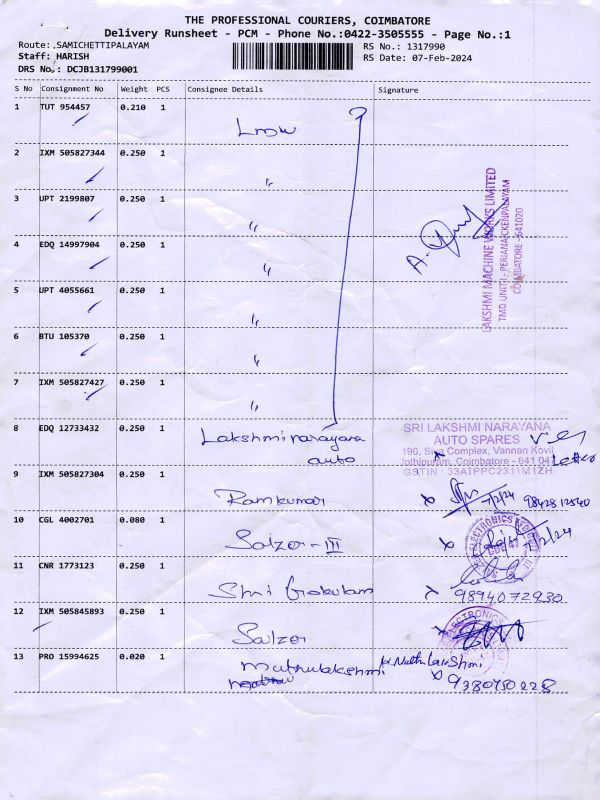 THE PROFESSIONAL COURIERS, COIMBATORE
Delivery Runsheet - PCM - Phone No.:0422-3505555 - Page No.:1
Route: .SAMICHETTIPALAYAM RS No.: 1317990
Staff: HARISH RS Date: 07-Feb-2024
DRS No.: DCJB131799001
S No Consignment No Weight PCS Consignee Details Signature
1 TUT 954457 0.210 1 Lmw
2 IXM 505827344 0.250 1 "
3 UPT 2199807 0.250 1 "
4 EDQ 14997904 0.250 1 "
5 UPT 4055661 0.250 1 "
6 BTU 105370 0.250 1 "
7 IXM 505827427 0.250 1 "
LAKSHMI MACHINE WORKS LIMITED
TMD UNIT II - PERIANAICKENPALAYAM
COIMBATORE - 641020
8 EDQ 12733432 0.250 1 Lakshmi narayana
auto
SRI LAKSHMI NARAYANA
AUTO SPARES
190, Siva Complex, Vannan Kovil
Jothipuram, Coimbatore - 641 047
GSTIN : 33AIPPC2311M1ZH
9 IXM 505827304 0.250 1 Ramkumar x 7/2/24 9842812540
10 CGL 4002701 0.080 1 Salzer - III x 7/2/24
11 CNR 1773123 0.250 1 Shri Gokulam x
9894072930
12 IXM 505845893 0.250 1 Salzer x
13 PRO 15994625 0.020 1 Muthulakshmi
x 9380750228